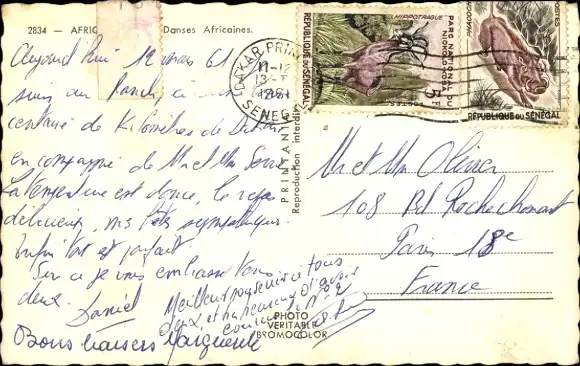 2834 - AFRIQ Danses Africaines.
Aujourd'hui 12 mars 61
suis au Ranch, à une
centaine de Kilomètres de Dakar
en compagnie de M et Mme
La température est douce, le repas
délicieux, nos hôtes sympathiques.
Enfin tout est parfait.
Sur ce je vous embrasse tous
deux. Daniel
Meilleur souvenir à tous
deux, et heureux d'avoir
Bons baisers Marguerite
PRINTANIA
Reproduction interdite
PHOTO
VERITABLE
BROMOCOLOR
DAKAR PRIN
12-3
SENEG
REPUBLIQUE DU SENEGAL
HIPPOTRAGUE
PARC NATIONAL DU
NIOKOLO-KOBA
5F
POSTES
PHACOCHERE
POSTES
REPUBLIQUE DU SENEGAL
M et Mme Olivier
108 Bd Rochechouart
Paris 18e
France